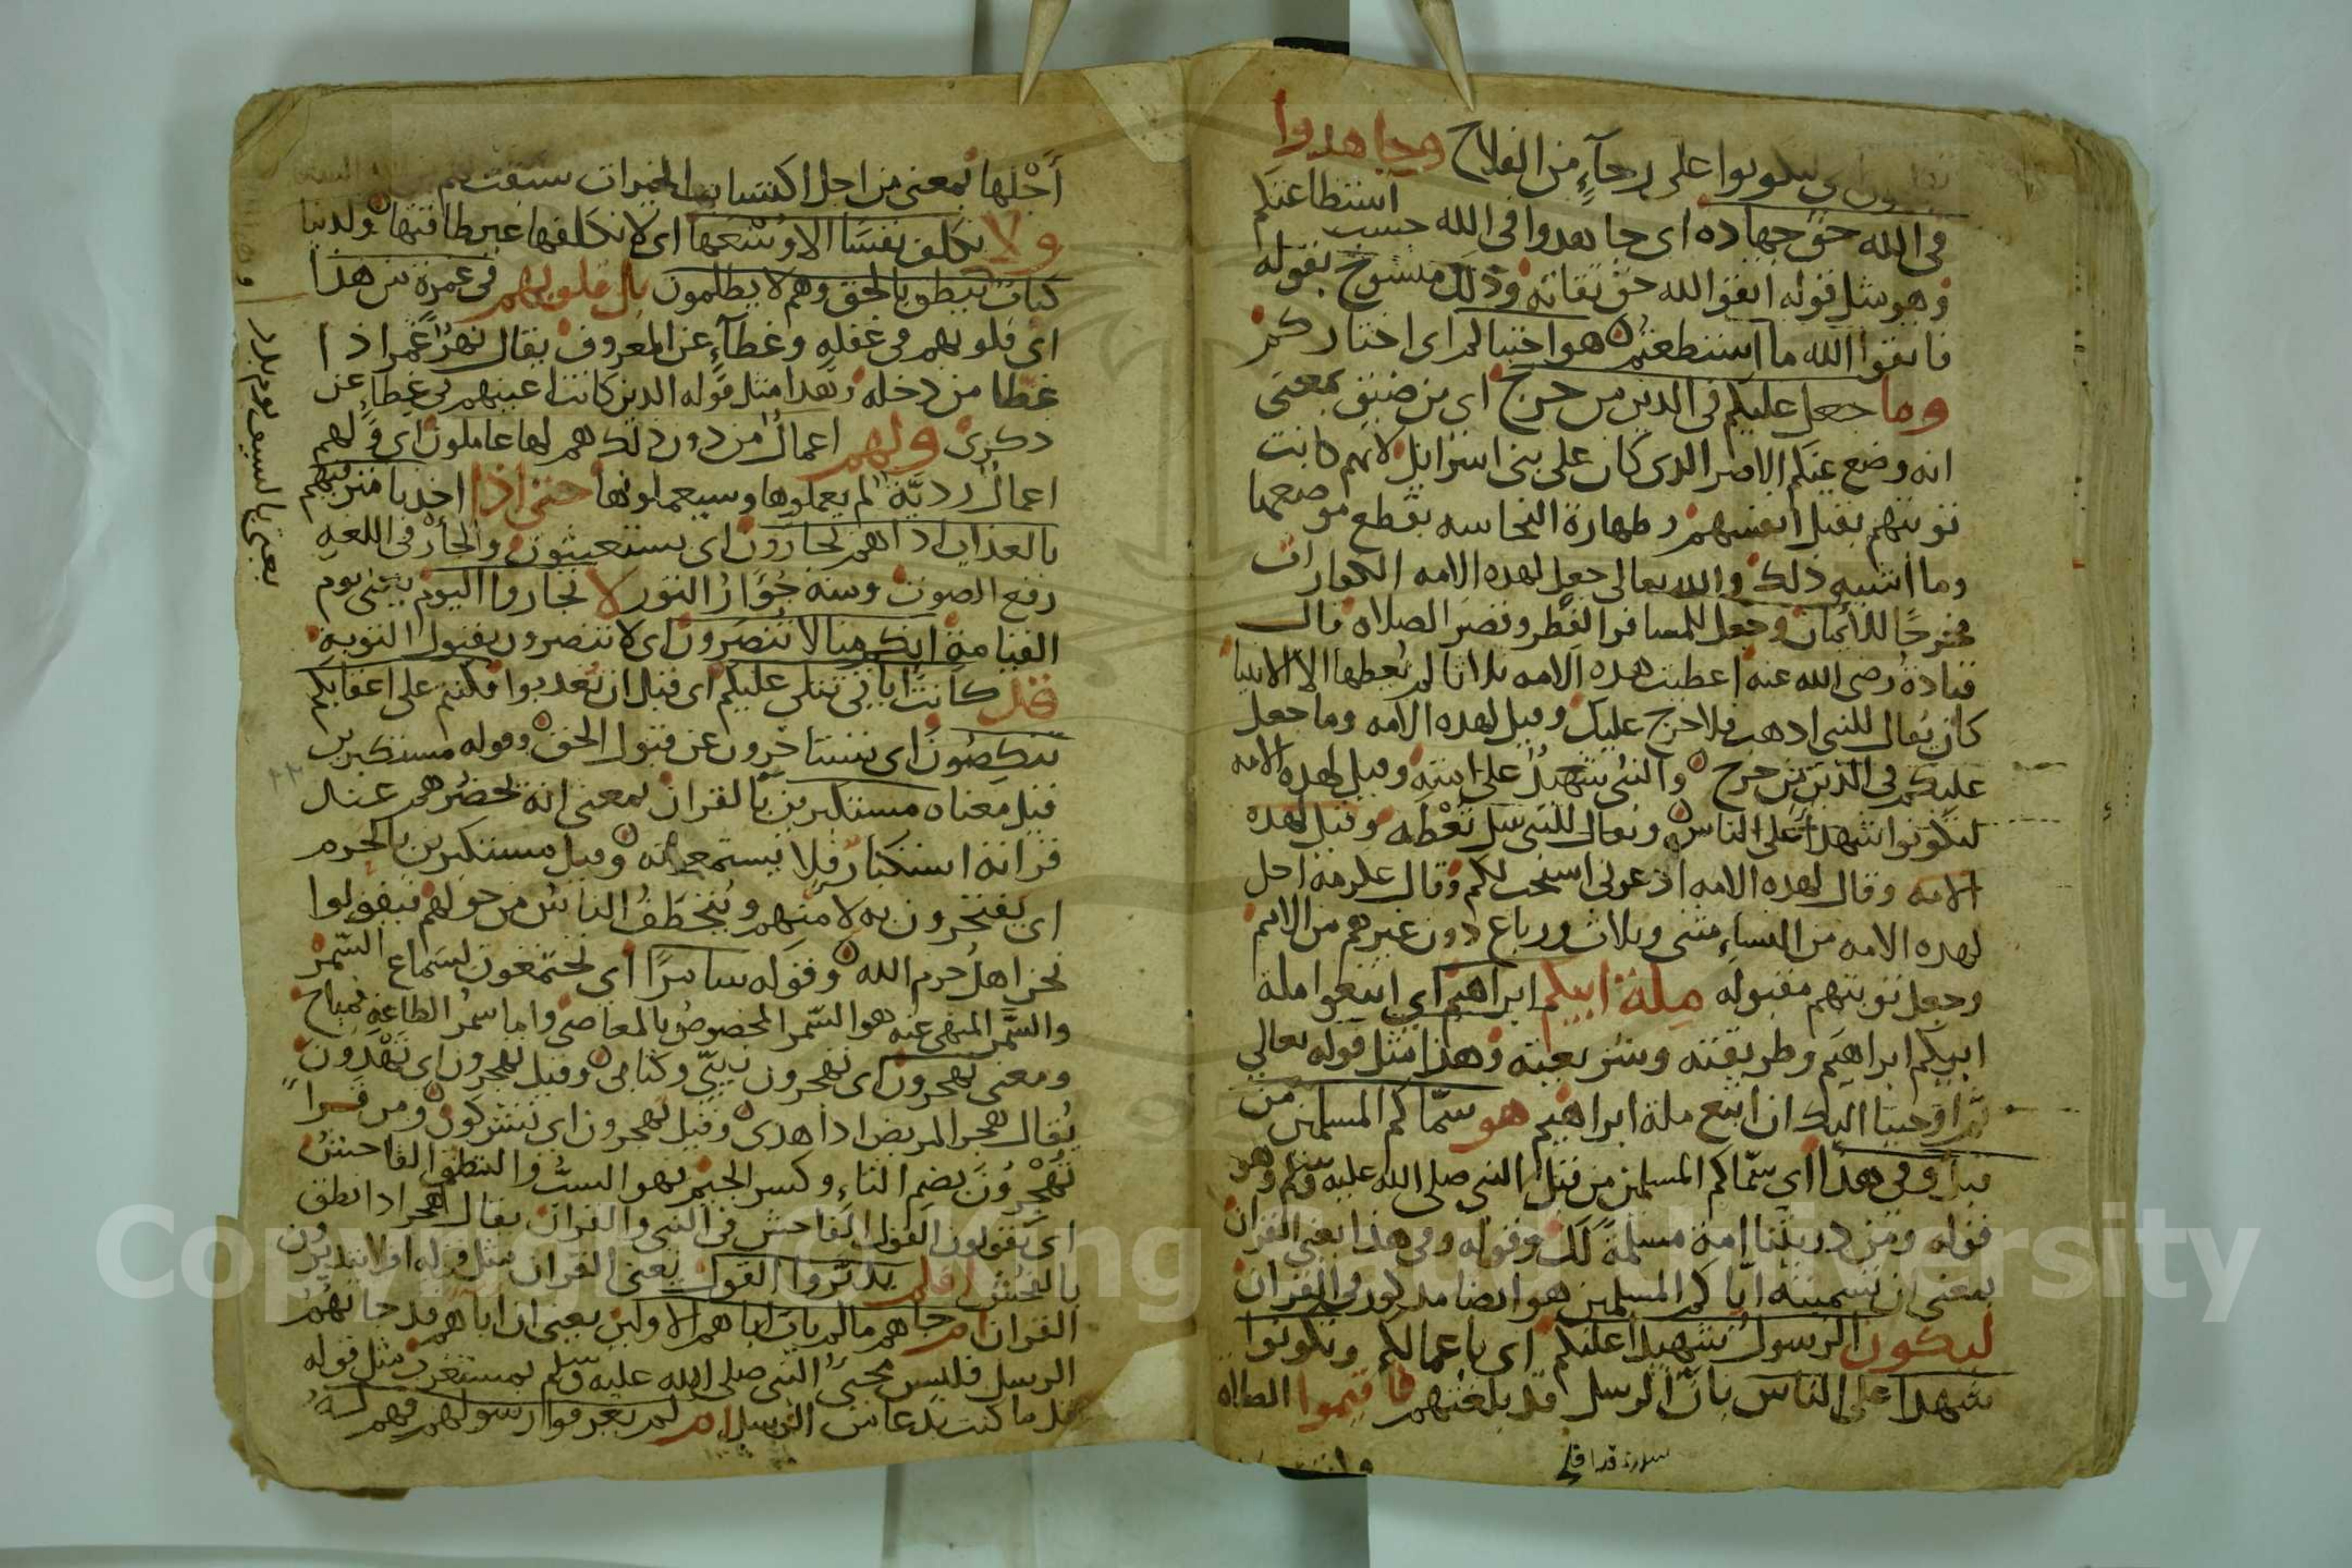 لتكونوا على رجآءٍ من الفلاح وجاهدوا
فى الله حق جهاده اى جاهدوا فى الله حسب استطاعتكم
وهو مثل قوله اتقوا الله حق تقاته وذلك منسوخ بقوله
فاتقوا الله ما استطعتم هو اجتباكم اى اختاركم
وما جعل عليكم فى الدين من حرج اى من ضيق بمعنى
انه وضع عنكم الاصر الذى كان على بنى اسرايل لانهم كانت
توبتهم بقتل انفسهم وطهارة النجاسه بقطع موضعها
وما اشبه ذلك والله تعالى جعل لهذه الامه الكفارات
مخرجًا للأيمان وجعل للمسافر الفطر وقصر الصلاه قال
قتادة رضى الله عنه اعطيت هذه الامه ثلاثا لم يُعطها الا الانبيا
كان يقال للنبى اذهب فلا حرج عليك وقيل لهذه الامه وما جعل
عليكم فى الدين من حرج والنبى شهيدٌ على امته وقيل لهذه الامه
لتكونوا شهدآ على الناس ويقال للنبى سل تُعْطَه وقيل لهذه
الامه وقال لهذه الامه ادعونى استجب لكم وقال عكرمة احل
لهذه الامه من النساءِ مثنى وثلاث ورباع دون غيرهم من الامم
وجعل توبتهم مقبوله مِلة ابيكم ابراهيم اى اتبعوا ملة
ابيكم ابراهيم وطريقته وشريعته وهذا مثل قوله تعالى
ثم اوحينا اليك ان اتبع ملة ابراهيم هو سمّاكم المسلمين من
قبل وفى هذا اى سمّاكم المسلمين من قبل النبى صلى الله عليه وسلم وهو
قوله ومن ذريتنا امة مسلمةً لك وقوله وفى هذا يعنى القران
بمعنى ان تسميته اياكم المسلمين هو ايضا مذكور فى القران
ليكون الرسول شهيدا عليكم اى باعمالكم وتكونوا
شهدآ على الناس بانّ الرسل قد بلغتهم فاقيموا الصلاه
سورة قد افلح
أجْلها بمعنى من اجل اكتسابها الخيرات سبقت لهم
ولا نكلف نفسًا الا وُسْعَها اى لا نكلفها غير طاقتها ولدينا
كتاب ينطق بالحق وهم لا يظلمون بل قلوبهم فى غمرة من هذا
اى قلوبهم فى غفلهٍ وغطآءٍ عن المعروف يقال نهرٌ غمر اذا
غطا من دخله وهذا مثل قوله الذين كانت اعينهم فى غطاءٍ عن
ذكرى ولهم اعمالٌ من دون ذلك هم لها عاملون اى ولهم
اعمالٌ رديّة لم يعملوها وسيعملونها حتى اذا اخذنا مترفيهم
بالعذاب اذا هم يجأرون اى يستغيثون والجأر فى اللغه
رفع الصوت ومنه جُؤَارُ الثور لا تجأروا اليوم يعنى يوم
القيامة انكم منا لا تنصرون اى لا تنصرون بقبول التوبه
قد كانت اياتى تتلى عليكم اى قبل ان تعذبوا فكنتم على اعقابكم
تنكصُون اى تستاخرون عن قبول الحق وقوله مستكبرين
قيل معناه مستكبرين بالقران بمعنى انه يحضرهم عند
قراته استكبار فلا يستمعونه وقيل مستكبرين بالحرم
اى يفتخرون به لامنهم ويُتخطَّفُ الناسُ من حولهم فيقولوا
نحن اهل حرم الله وقوله سامرًا اى يجتمعون لسَماع السّمر
والسَّمر المنهى عنه هو السّمر المخصوص بالمعاصى واما سمرُ الطاعةِ فمباح
ومعنى تهجرون اى تهجرون نبيّى وكتابى وقيل تهجرون اى تَهْذون
يُقال هجر المريض اذا هذى وقيل تهجرون اى تشركون ومن قرا
تُهْجِرُونَ بضم التاءِ وكسر الجيم فهو السبُّ والنطق الفاحش
اى يقولون القول الفاحش فى النبى والقران يقال اهجر اذا نطق
بالفحش افلم يدبّروا القول يعنى القران مثل قوله افلا يتدبرون
القران ام جاهم ما لم يات اباهم الاولين يعنى ان اباهم قد جاتهُمُ
الرسل فليس مجىُ النبى صلى الله عليه وسلم بمستغرب مثل قوله
قل ما كنت بدعا من الرسل ام لم يعرفوا رسولهم فهم له
يعنى بالسيف يوم بدر
Copyright © King Saud University